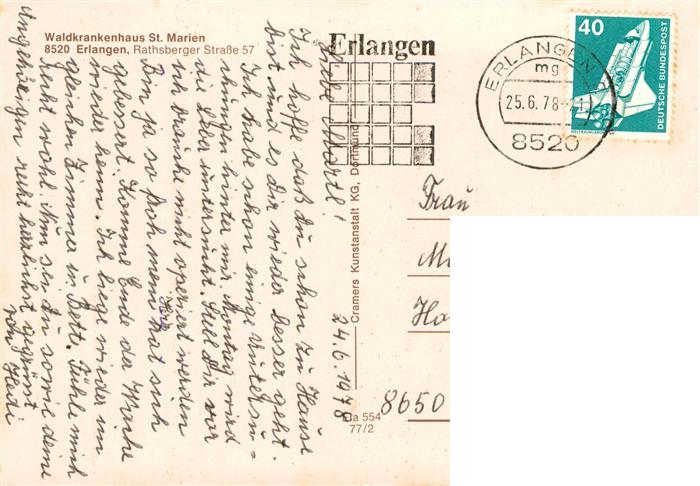 Waldkrankenhaus St. Marien
8520 Erlangen, Rathsberger Straße 57
Erlangen
ERLANGEN
mg
25.6.78
8520
40
DEUTSCHE BUNDESPOST
WELTRAUMLABOR
24.6.1978
Liebe Martl!
Ich hoffe daß du schon zu Hause
bist und es dir wieder besser geht.
Ich habe schon einige Untersu=
chungen hinter mir Montag wird
die Leber untersucht. Stell dir vor
ich brauche nicht operiert werden
Bin ja so froh mein hat sich
gebessert. Komme Ende der Woche
wieder heim. Ich liege wieder im
gleichen Zimmer u. Bett. Fühle mich
recht wohl. Nun sei du sowie deine
Angehörigen recht herzlichst gegrüsst
von Hedi
Cramers Kunstanstalt KG, Dortmund
Ela 554
77/2
Frau
M
Ho
8650